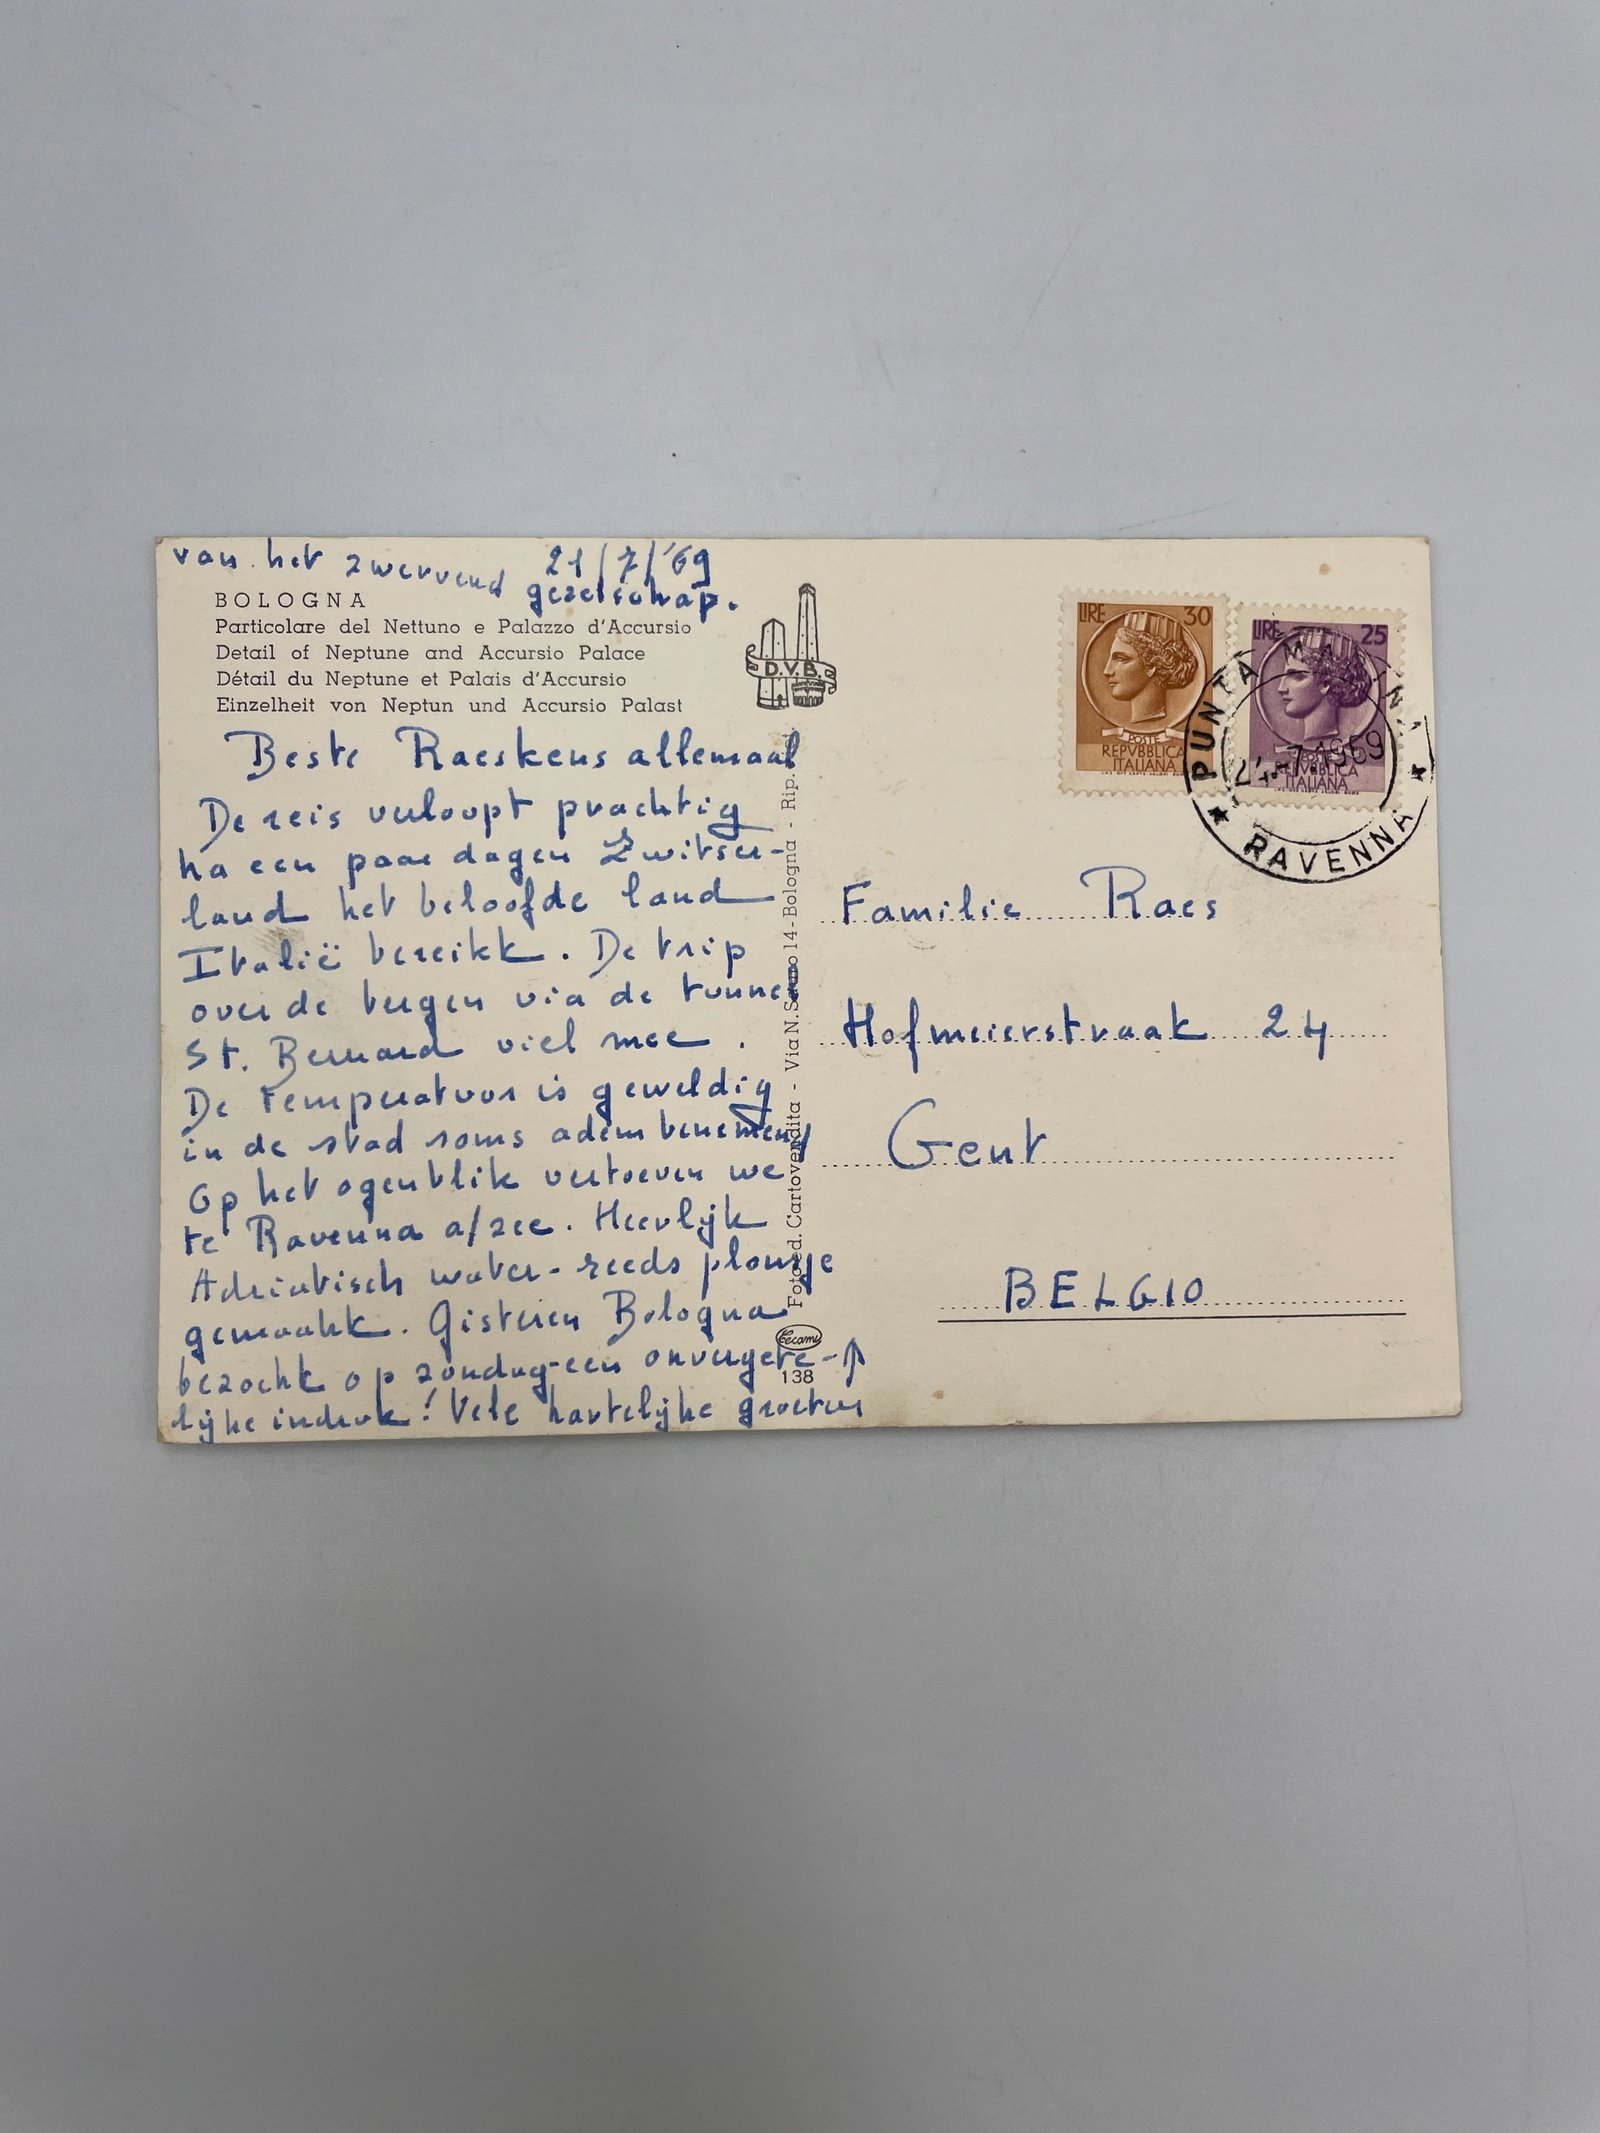 van het zwervend 21/7/'69
gezelschap.
BOLOGNA
Particolare del Nettuno e Palazzo d'Accursio
Detail of Neptune and Accursio Palace
Détail du Neptune et Palais d'Accursio
Einzelheit von Neptun und Accursio Palast
D.V.B.
Beste Raeskens allemaal
De reis verloopt prachtig
na een paar dagen Zwitser-
land het beloofde land
Italië bereikt. De trip
over de bergen via de tunnel
St. Bernard viel mee.
De temperatuur is geweldig
in de stad soms adembenemend
Op het ogenblik vertoeven we
te Ravenna a/zee. Heerlijk
Adriatisch water - reeds plonsje
gemaakt. Gisteren Bologna
bezocht op zondag - een onvergete-
lijke indruk! Vele hartelijke groeten
Foto ed. Cartovendita - Via N. Sauro 14 - Bologna - Rip.
Cecami
138
LIRE 30
POSTE
REPVBBLICA
ITALIANA
LIRE 25
POSTE
REPVBBLICA
ITALIANA
PUNTA MARINA
7.1969
RAVENNA
Familie Raes
Hofmeierstraat 24
Gent
BELGIO